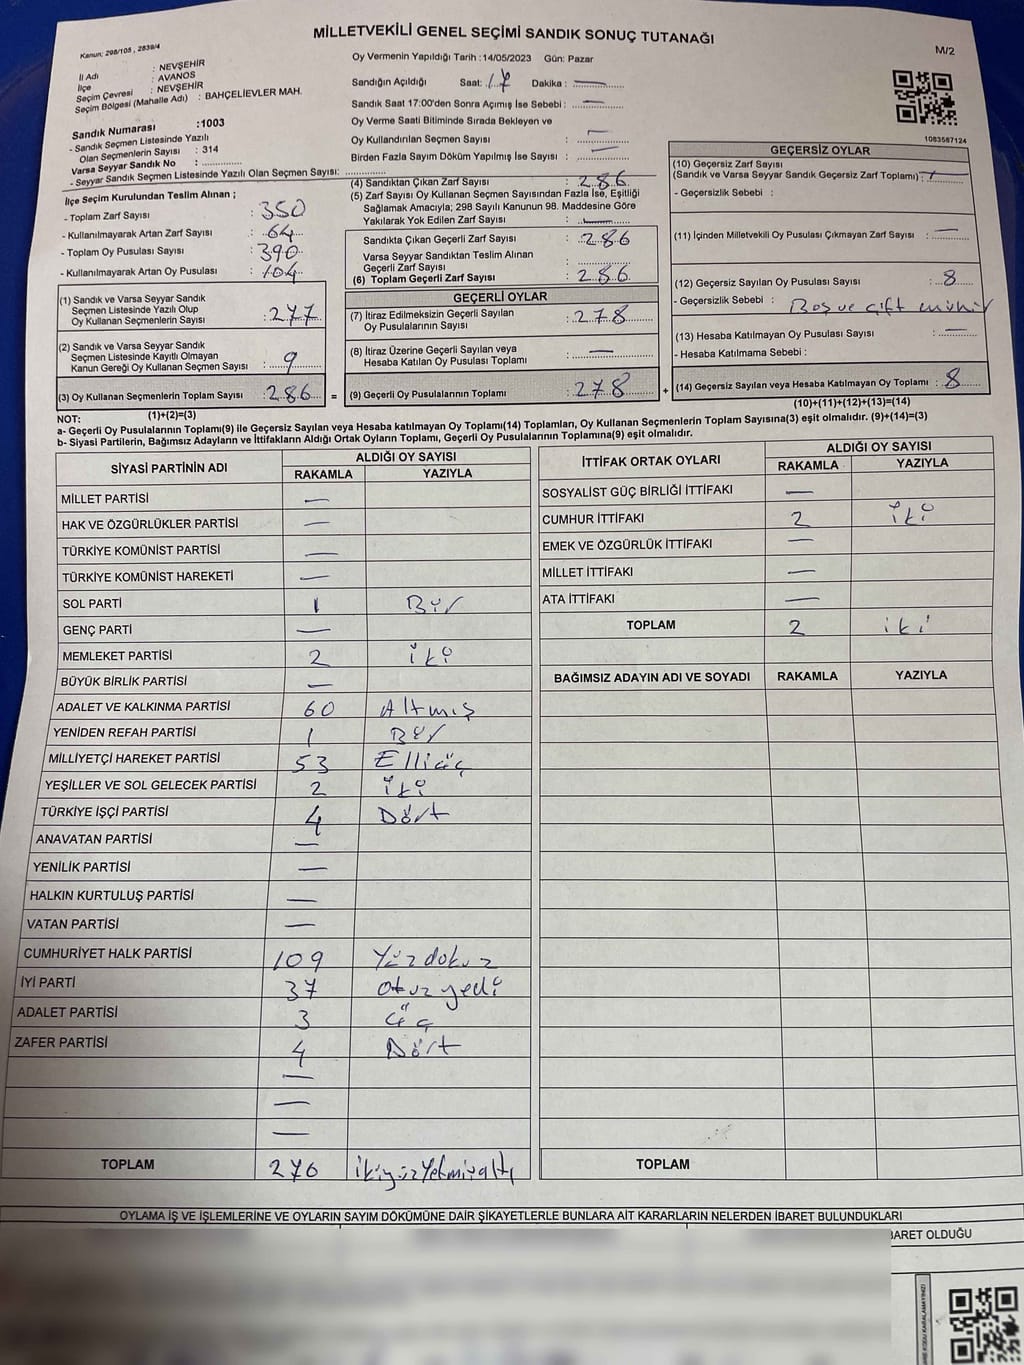 MİLLETVEKİLİ GENEL SEÇİMİ SANDIK SONUÇ TUTANAĞI
Kanun: 298/105 , 2839/4
M/2
İl Adı : NEVŞEHİR
İlçe : AVANOS
Seçim Çevresi : NEVŞEHİR
Seçim Bölgesi (Mahalle Adı) : BAHÇELİEVLER MAH.
Sandık Numarası : 1003
- Sandık Seçmen Listesinde Yazılı
Olan Seçmenlerin Sayısı : 314
Varsa Seyyar Sandık No :
- Seyyar Sandık Seçmen Listesinde Yazılı Olan Seçmen Sayısı:
Oy Vermenin Yapıldığı Tarih :14/05/2023 Gün: Pazar
Sandığın Açıldığı Saat: 17 Dakika : —
Sandık Saat 17:00'den Sonra Açımış İse Sebebi : —
Oy Verme Saati Bitiminde Sırada Bekleyen ve
Oy Kullandırılan Seçmen Sayısı : —
Birden Fazla Sayım Döküm Yapılmış İse Sayısı : —
1083587124
İlçe Seçim Kurulundan Teslim Alınan ;
- Toplam Zarf Sayısı : 350
- Kullanılmayarak Artan Zarf Sayısı : 64
- Toplam Oy Pusulası Sayısı : 390
- Kullanılmayarak Artan Oy Pusulası : 104
(1) Sandık ve Varsa Seyyar Sandık
Seçmen Listesinde Yazılı Olup
Oy Kullanan Seçmenlerin Sayısı : 277
(2) Sandık ve Varsa Seyyar Sandık
Seçmen Listesinde Kayıtlı Olmayan
Kanun Gereği Oy Kullanan Seçmen Sayısı : 9
(3) Oy Kullanan Seçmenlerin Toplam Sayısı : 286 =
(1)+(2)=(3)
(4) Sandıktan Çıkan Zarf Sayısı : 286
(5) Zarf Sayısı Oy Kullanan Seçmen Sayısından Fazla İse, Eşitliği
Sağlamak Amacıyla; 298 Sayılı Kanunun 98. Maddesine Göre
Yakılarak Yok Edilen Zarf Sayısı : —
Sandıkta Çıkan Geçerli Zarf Sayısı : 286
Varsa Seyyar Sandıktan Teslim Alınan
Geçerli Zarf Sayısı :
(6) Toplam Geçerli Zarf Sayısı : 286
GEÇERLİ OYLAR
(7) İtiraz Edilmeksizin Geçerli Sayılan
Oy Pusulalarının Sayısı : 278
(8) İtiraz Üzerine Geçerli Sayılan veya
Hesaba Katılan Oy Pusulası Toplamı : —
(9) Geçerli Oy Pusulalarının Toplamı : 278 +
GEÇERSİZ OYLAR
(10) Geçersiz Zarf Sayısı
(Sandık ve Varsa Seyyar Sandık Geçersiz Zarf Toplamı) : —
- Geçersizlik Sebebi :
(11) İçinden Milletvekili Oy Pusulası Çıkmayan Zarf Sayısı : —
(12) Geçersiz Sayılan Oy Pusulası Sayısı : 8
- Geçersizlik Sebebi : Boş ve çift mühür
(13) Hesaba Katılmayan Oy Pusulası Sayısı : —
- Hesaba Katılmama Sebebi :
(14) Geçersiz Sayılan veya Hesaba Katılmayan Oy Toplamı : 8
(10)+(11)+(12)+(13)=(14)
NOT:
a- Geçerli Oy Pusulalarının Toplamı(9) ile Geçersiz Sayılan veya Hesaba katılmayan Oy Toplamı(14) Toplamları, Oy Kullanan Seçmenlerin Toplam Sayısına(3) eşit olmalıdır. (9)+(14)=(3)
b- Siyasi Partilerin, Bağımsız Adayların ve İttifakların Aldığı Ortak Oyların Toplamı, Geçerli Oy Pusulalarının Toplamına(9) eşit olmalıdır.
SİYASİ PARTİNİN ADI ALDIĞI OY SAYISI
RAKAMLA YAZIYLA
MİLLET PARTİSİ —
HAK VE ÖZGÜRLÜKLER PARTİSİ —
TÜRKİYE KOMÜNİST PARTİSİ —
TÜRKİYE KOMÜNİST HAREKETİ —
SOL PARTİ 1 Bir
GENÇ PARTİ —
MEMLEKET PARTİSİ 2 İki
BÜYÜK BİRLİK PARTİSİ —
ADALET VE KALKINMA PARTİSİ 60 Altmış
YENİDEN REFAH PARTİSİ 1 Bir
MİLLİYETÇİ HAREKET PARTİSİ 53 Elliüç
YEŞİLLER VE SOL GELECEK PARTİSİ 2 İki
TÜRKİYE İŞÇİ PARTİSİ 4 Dört
ANAVATAN PARTİSİ —
YENİLİK PARTİSİ —
HALKIN KURTULUŞ PARTİSİ —
VATAN PARTİSİ —
CUMHURİYET HALK PARTİSİ 109 Yüzdokuz
İYİ PARTİ 37 otuzyedi
ADALET PARTİSİ 3 üç
ZAFER PARTİSİ 4 Dört
—
—
—
TOPLAM 276 ikiyüzYetmişaltı
İTTİFAK ORTAK OYLARI ALDIĞI OY SAYISI
RAKAMLA YAZIYLA
SOSYALİST GÜÇ BİRLİĞİ İTTİFAKI —
CUMHUR İTTİFAKI 2 İki
EMEK VE ÖZGÜRLÜK İTTİFAKI —
MİLLET İTTİFAKI —
ATA İTTİFAKI —
TOPLAM 2 iki
BAĞIMSIZ ADAYIN ADI VE SOYADI RAKAMLA YAZIYLA
TOPLAM
OYLAMA İŞ VE İŞLEMLERİNE VE OYLARIN SAYIM DÖKÜMÜNE DAİR ŞİKAYETLERLE BUNLARA AİT KARARLARIN NELERDEN İBARET BULUNDUKLARI
BARET OLDUĞU